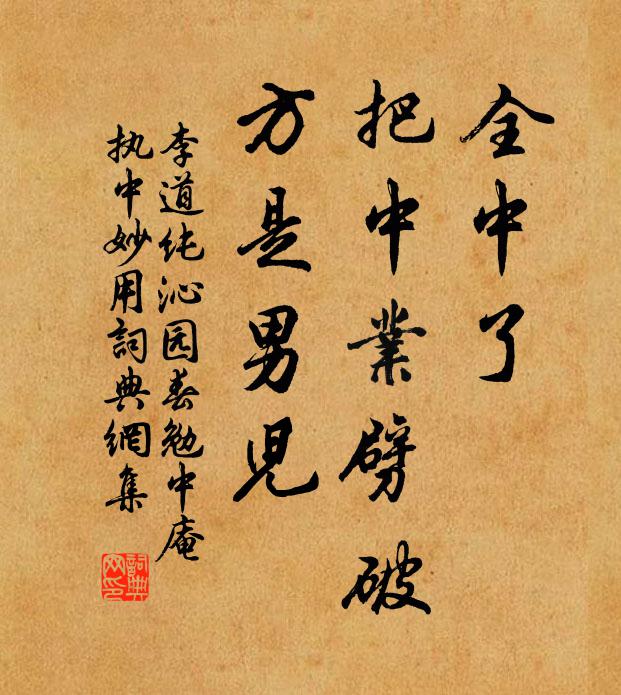 全中了
把中業劈破
方是男兒
李道纯沁园春勉中庵
执中妙用詞典網集
詞典网印